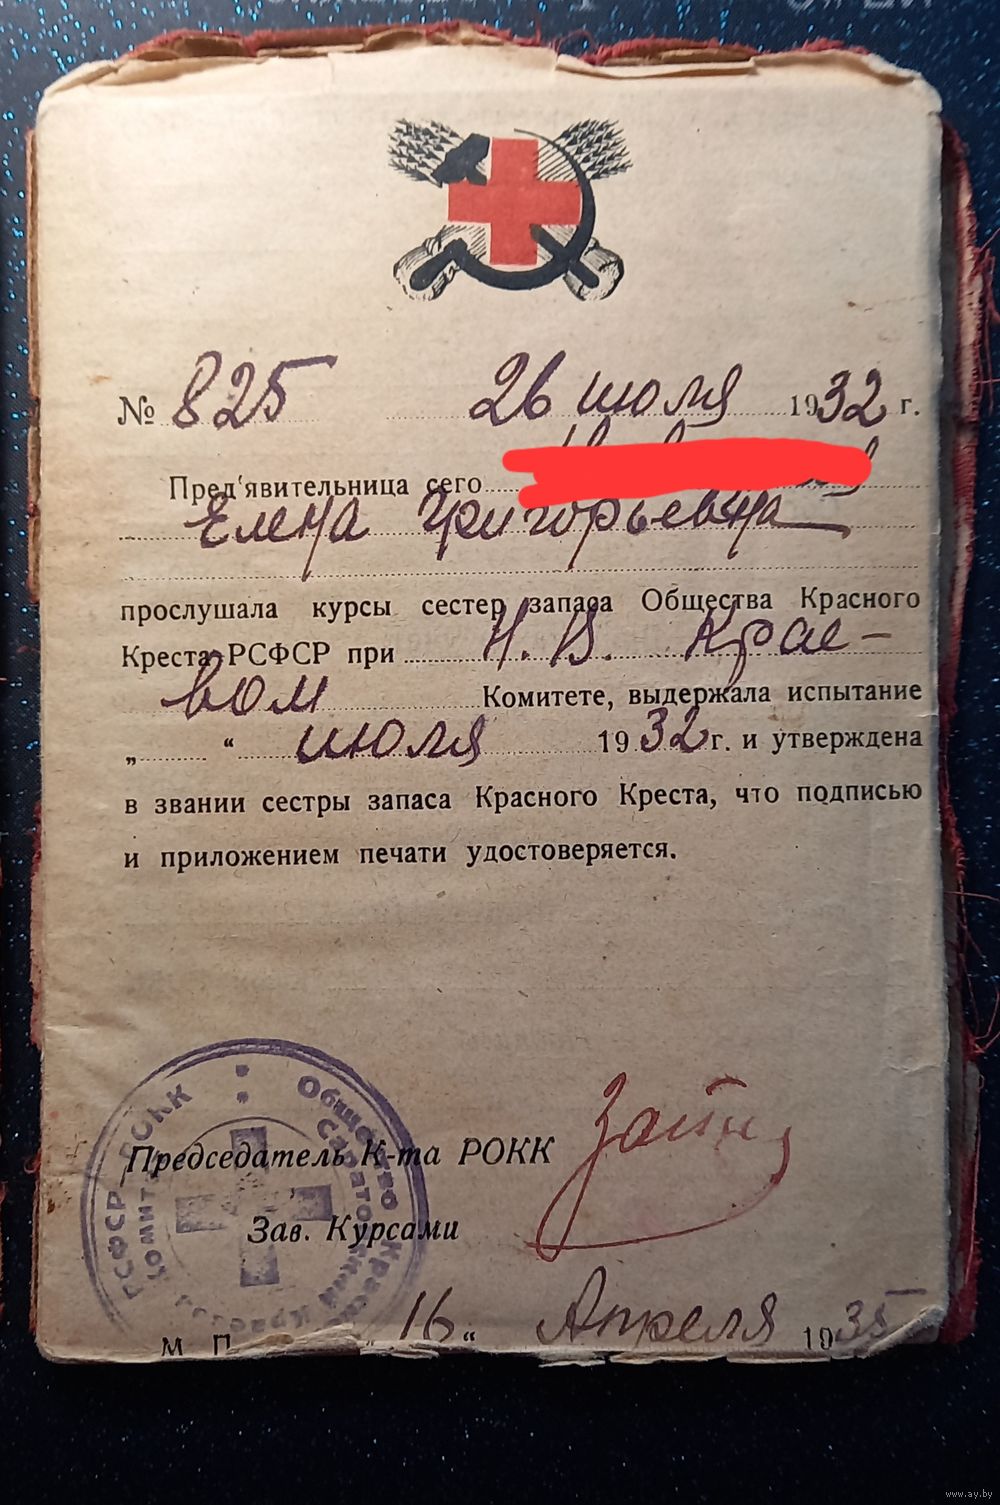 № 825 26 июля 1932 г.
Пред'явительница сего
Елена Григорьевна
прослушала курсы сестер запаса Общества Красного
Креста РСФСР при Н. В. Крае-
вом Комитете, выдержала испытание
„ “ июля 1932 г. и утверждена
в звании сестры запаса Красного Креста, что подписью
и приложением печати удостоверяется.
РСФСР РОКК Общество Красн
Саратовский Краевой Комитет
Председатель К-та РОКК
Зав. Курсами
М П „16“ Апреля 1935
www.ay.by